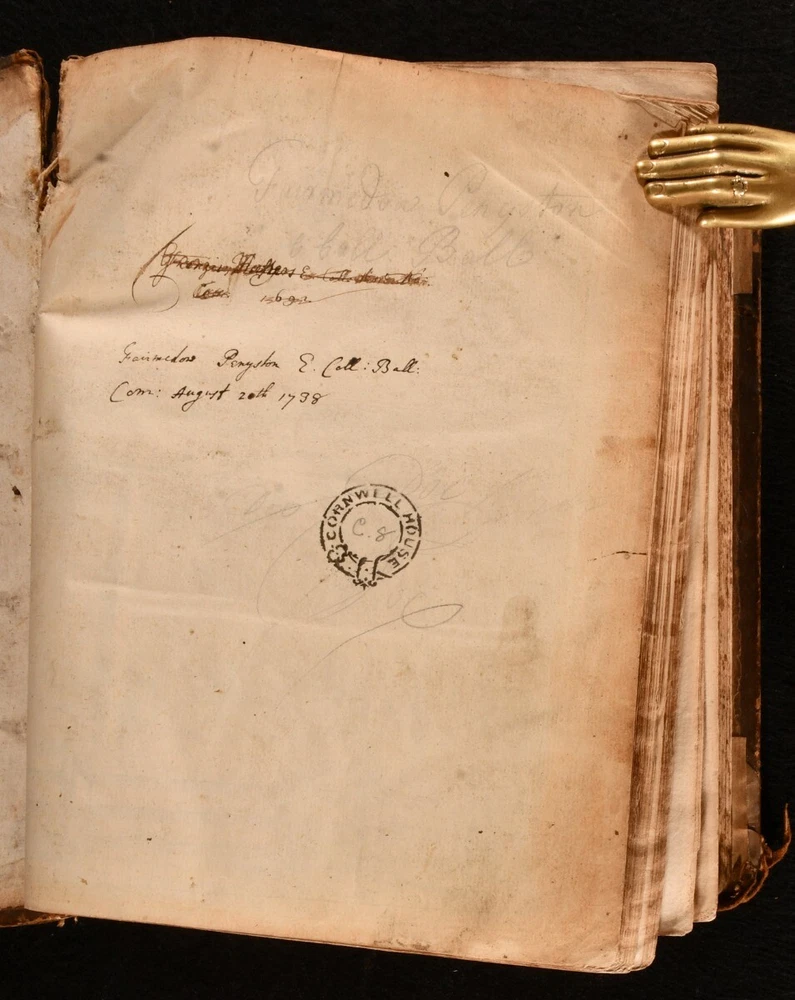 Fairmedow Penyston
e Coll Ball
Georgius
E Coll.
Com. 1693
Fairmedow Penyston E. Coll: Ball:
Com: August 20th 1738
CORNWELL HOUSE
C. 8